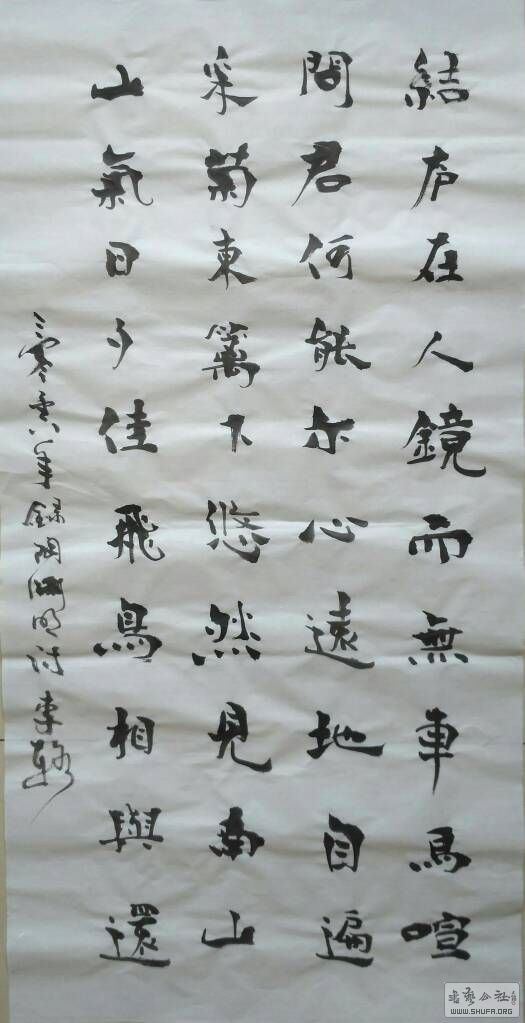 結庐在人鏡而無車馬喧
問君何能尔心遠地自遍
采菊東籬下悠然見南山
山氣日夕佳飛鳥相與還
二零零八年錄陶淵明诗李
书艺公社
WWW.SHUFA.ORG